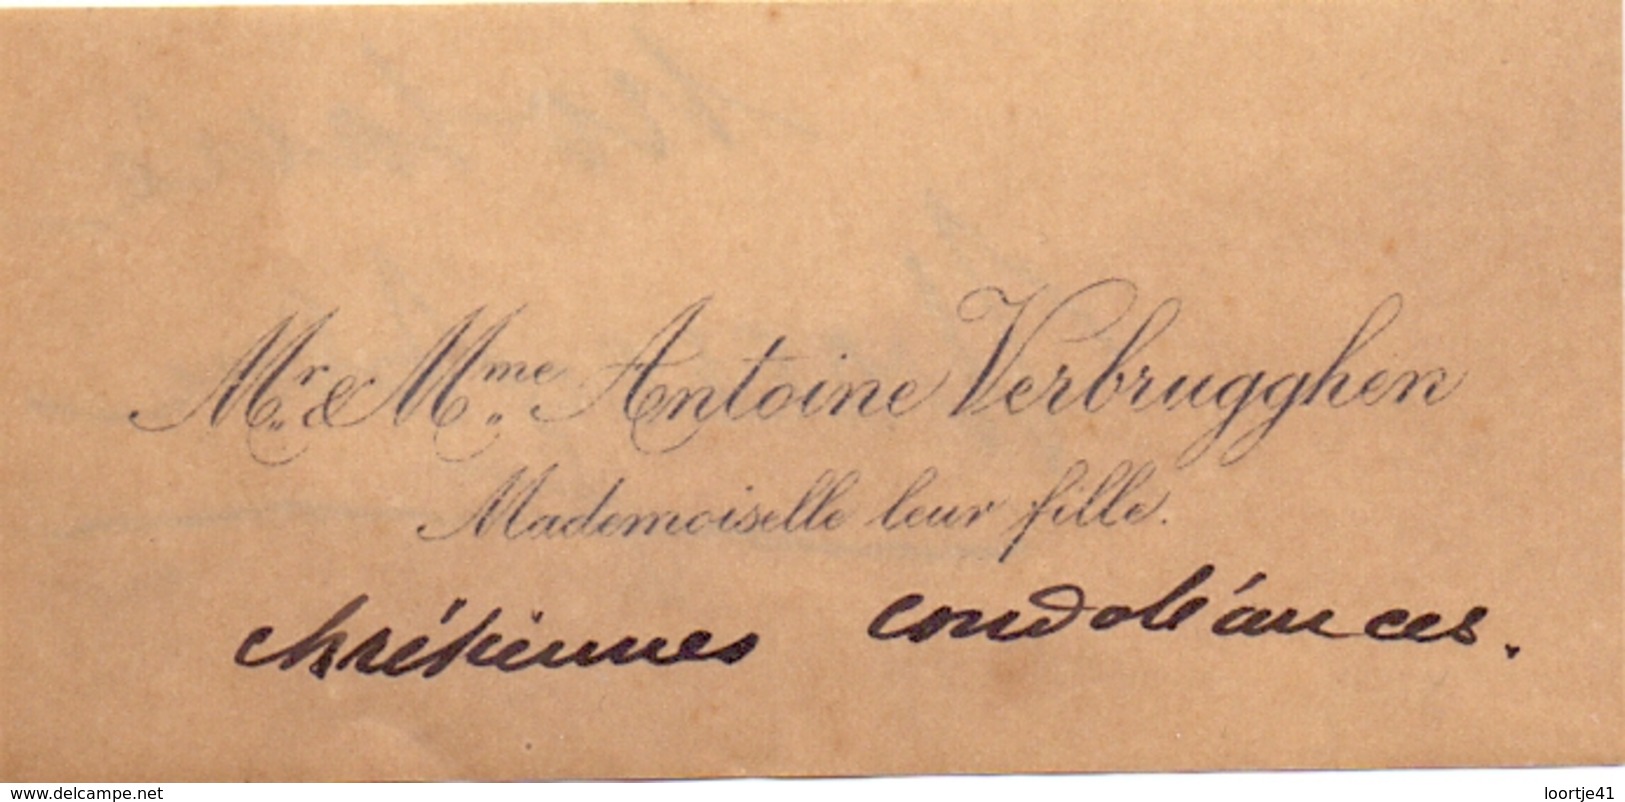 Mr. & Mme. Antoine Verbrugghen
Mademoiselle leur fille.
chrétiennes condoléances.
www.delcampe.net
loortje41